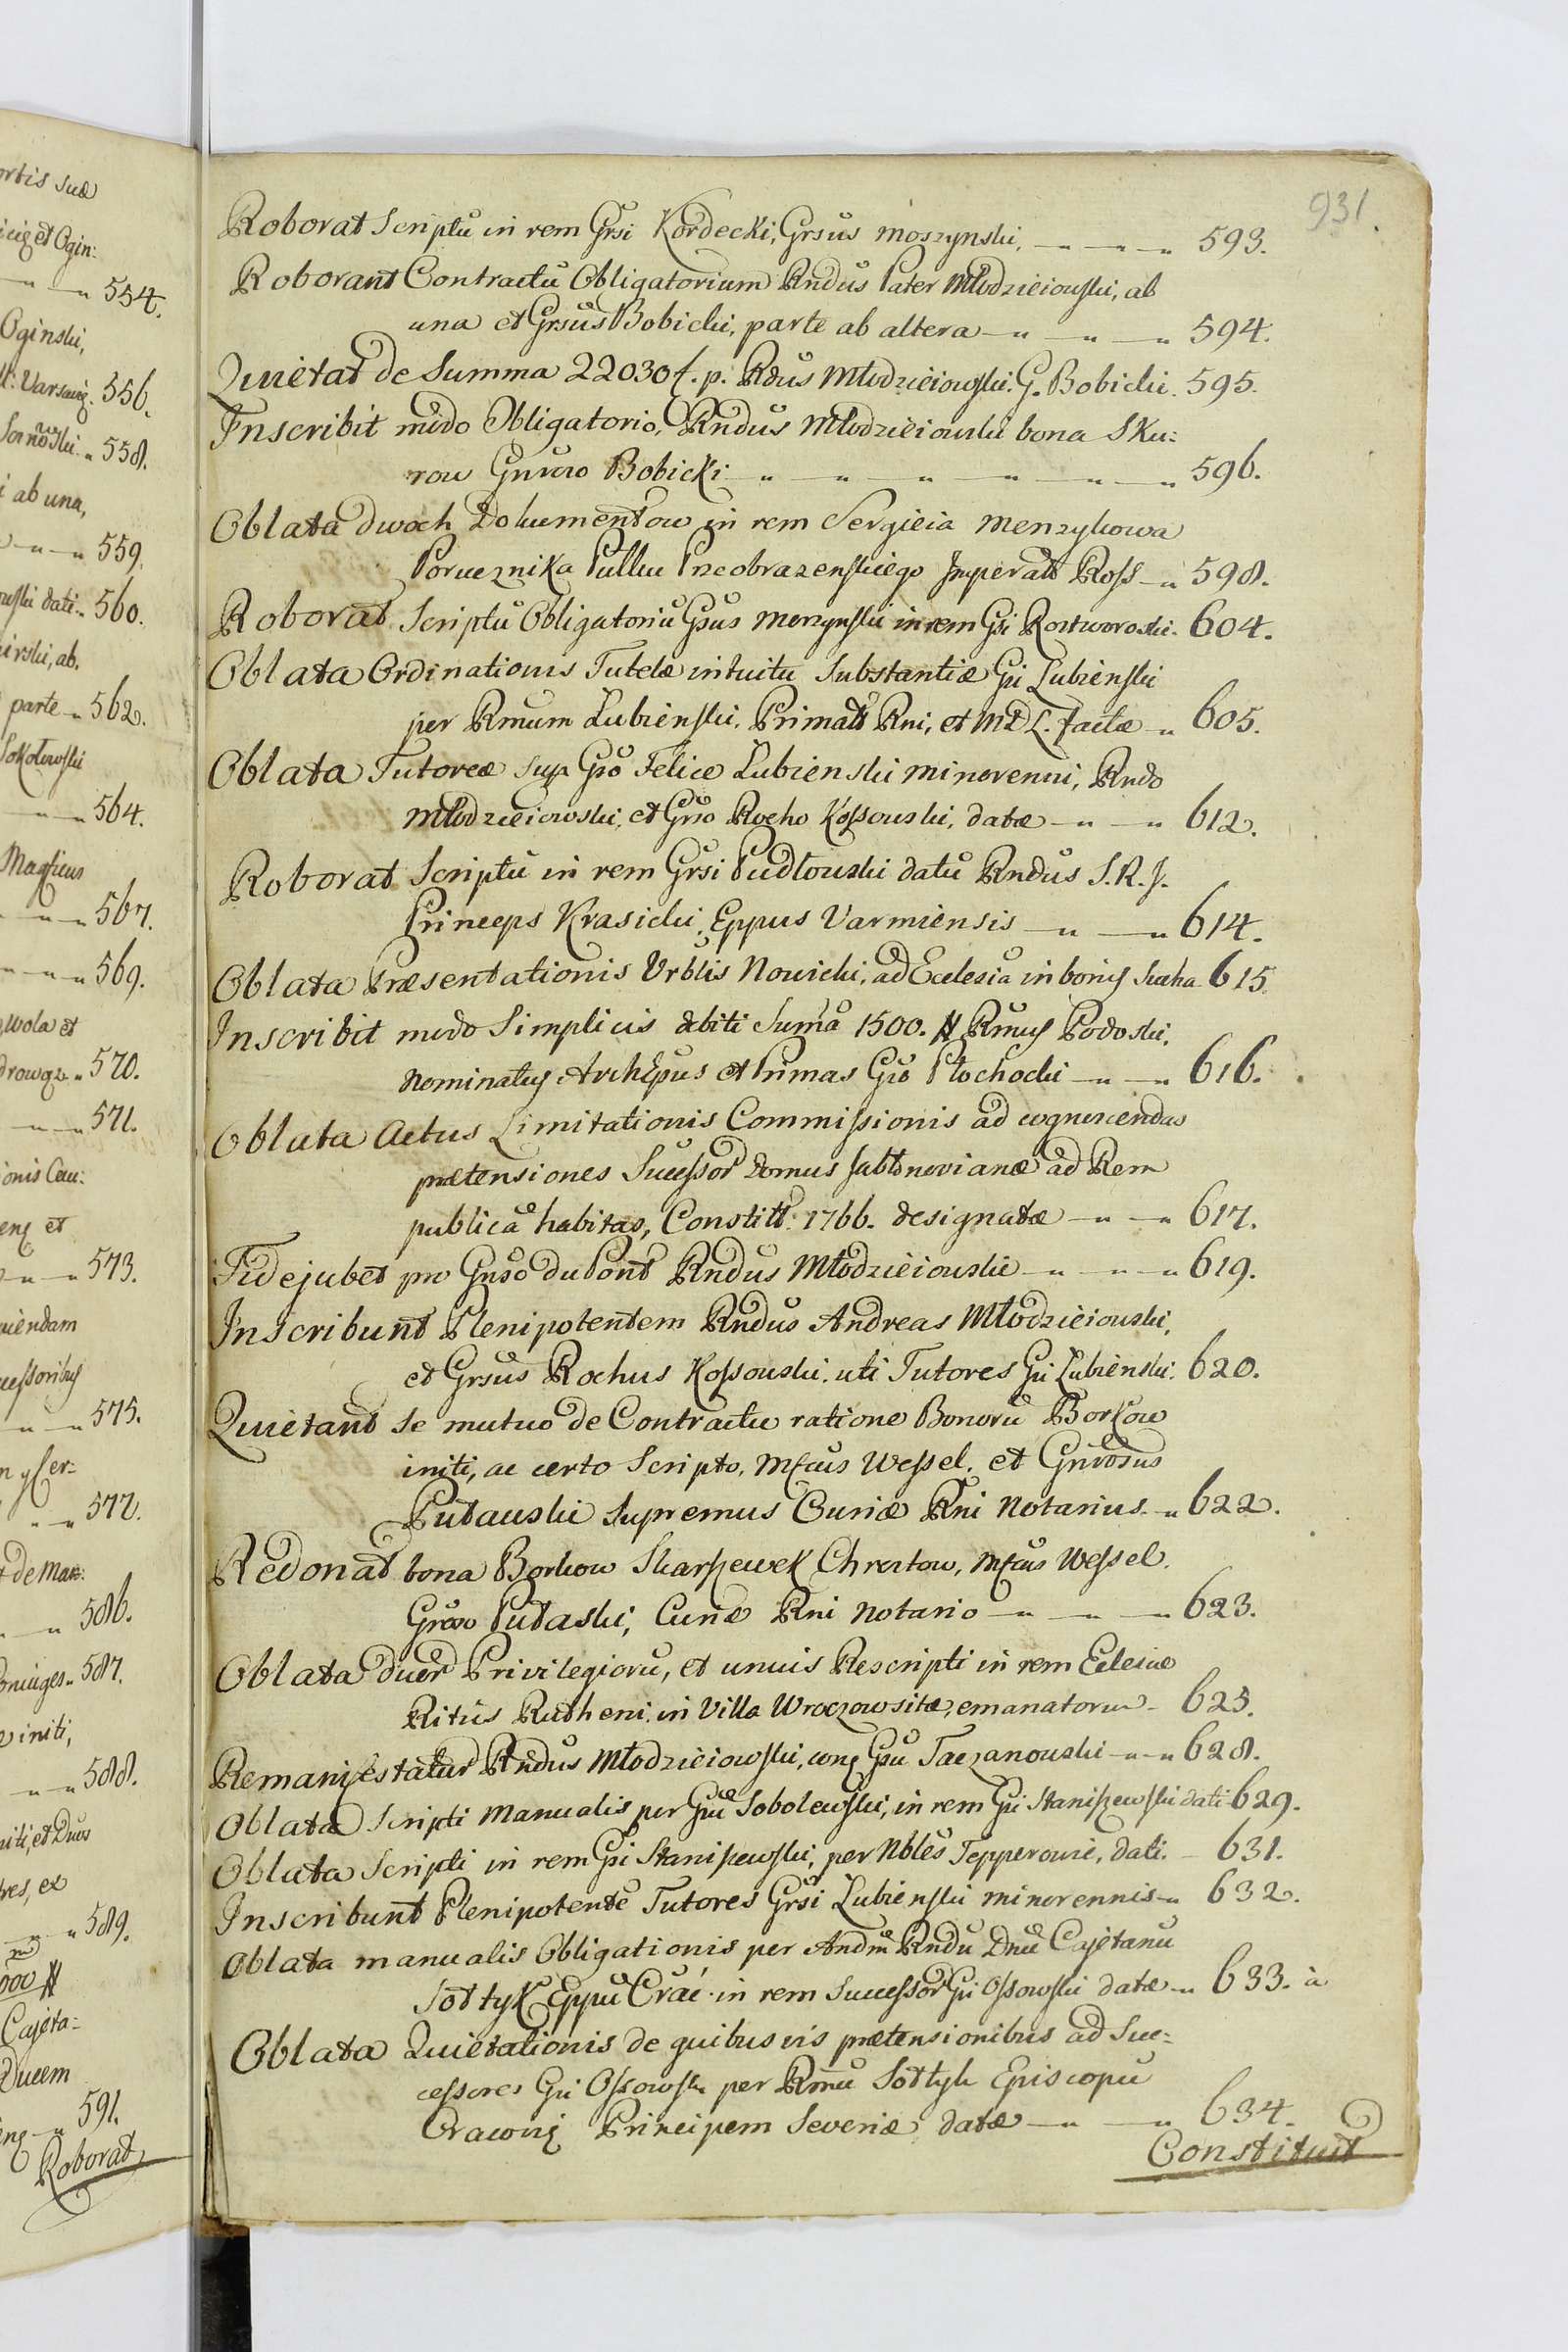 931.
Roborat Scriptu in rem Grsi Kordecki, Grsus Moszynski, 593.
Roborant Contractu Obligatorium Rndus Pater Młodzieiowski, ab
una et Grsus Bobicki, parte ab altera 594.
Quietat de Summa 22030 f. p. Rdus Młodzieiowski. G. Bobicki. 595.
Inscribit modo Obligatorio, Rndus Młodzieiowski bona Sku:
row Gnroso Bobicki 596.
Oblata dwoch Dokumentow in rem Sergieia Menzykowa
Porucznika Pułku Preobrazenskiego Imperat Ross 598.
Roborat Scriptu Obligatoriu Gsus Morzynski in rem Gsi Roztworoski. 604.
Oblata Ordinationis Tutelæ intuitu Substantiæ Gsi Lubienski
per Rmum Lubienski, Primat Rni, et M D L. factæ 605.
Oblata Tutoreæ sup Gso Felice Lubienski minorenni, Rndo
Młodzieiowski, et Grso Rocho Kossowski, datæ 612.
Roborat Scriptu in rem Grsi Pudłowski datu Rndus S. R. J.
Princeps Krasicki, Eppus Varmiensis 614.
Oblata Præsentationis Vrblis Nowicki, ad Ecclesia in bonis Sucha 615.
Inscribit modo Simplicis debiti Suma 1500. # Rmus Podoski,
nominatus Archepus et Primas Gso Płochocki 616.
Oblata Actus Limitationis Commissionis ad cognoscendas
prætensiones Sucessor Domus Jabłonovianæ ad Rem
publica habitas, Constitt: 1766. designatæ 617.
Fidejubet pro Gnso duPont Rndus Młodzieiowski 619.
Inscribunt Plenipotentem Rndus Andreas Młodzieiowski,
et Grsus Rochus Kossowski, uti Tutores Gsi Lubienski. 620.
Quietant se mutuo de Contractu ratione Bonoru Borkow
initi, ac certo Scripto, Mfcus Wessel, et Gnrosus
Putawski Supremus Curiæ Rni Notarius. 622.
Redonat bona Borkow Skarszewek Chrostow, Mfcus Wessel.
Groso Putaski, Curiæ Rni Notario 623.
Oblata duor Privilegioru, et unius Rescripti in rem Eclesiæ
Ritus Rutheni, in Villa Wroczow sitæ, emanatorum 625.
Remanifestatur Rndus Młodzieiowski, cong Gsu Taczanowski 628.
Oblata Scripti Manualis per Gsu Sobolewski, in rem Gsi Staniszewski dati 629.
Oblata Scripti in rem Gsi Staniszewski, per Nbles Tepperowie, dati. 631.
Inscribunt Plenipotente Tutores Grsi Lubienski minorennis 632.
Oblata manualis Obligationis per Andm Rndu Dnu Cajetanu
Sołtyk Eppu Crac: in rem Successor Gsi Ossowski datæ 633. a
Oblata Quietationis de quibusvis prætensionibus ad Suc:
cessores Gsi Ossowski per Rmu Sołtyk Episcopu
Cracovis Principem Severiæ datæ 634.
Constituit
ortis suæ
et Ogin:
554.
Oginski,
Varsavis. 556.
558.
i ab una,
559.
dati 560.
irski, ab.
parte 562.
Sokołowski
564.
567.
569.
Wola et
570.
571.
ionis Cau:
et
573.
uiendam
cessoribus
575.
577.
de Mar:
586.
587.
initi,
588.
niti, et Duos
tres, ex
589.
Cajeta:
Ducem
591.
Roborat